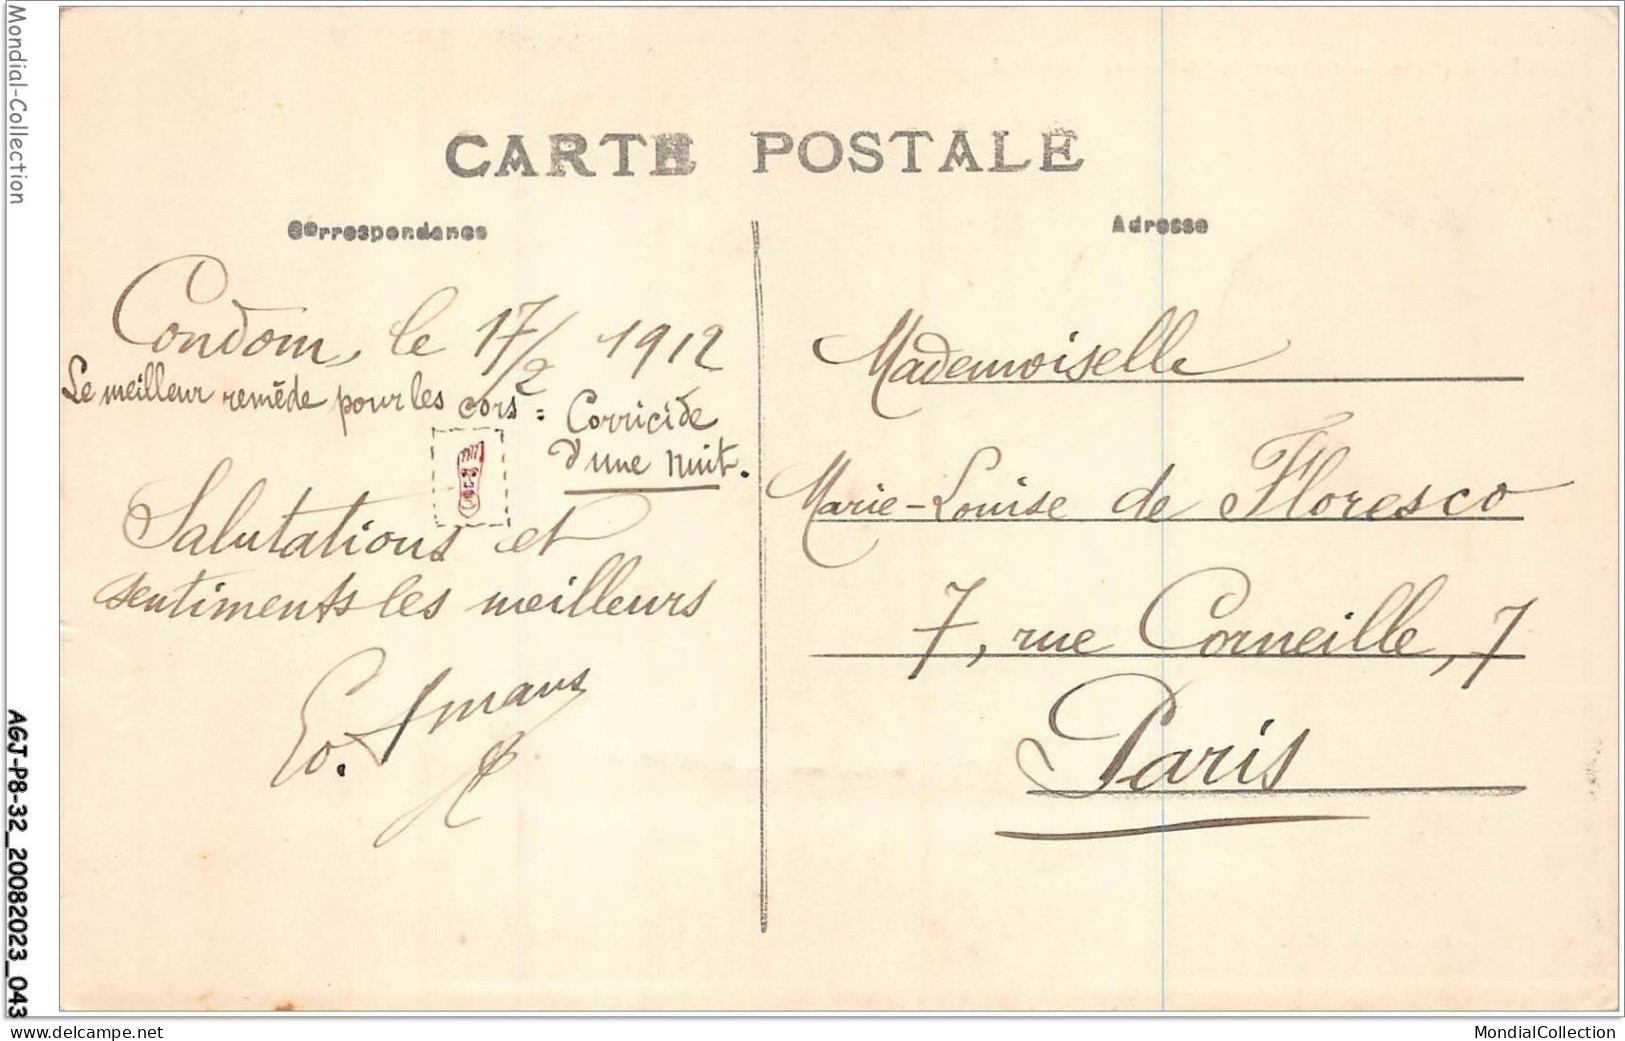 CARTE POSTALE
Correspondance
Adresse
Condom, le 17/2 1912
Le meilleur remède pour les cors = Corricide
d'une nuit.
Salutations et
sentiments les meilleurs
Mademoiselle
Marie-Louise de Floresco
7, rue Corneille, 7
Paris
Mondial-Collection
AGJ-P8-32_20082023_043
www.delcampe.net
MondialCollection